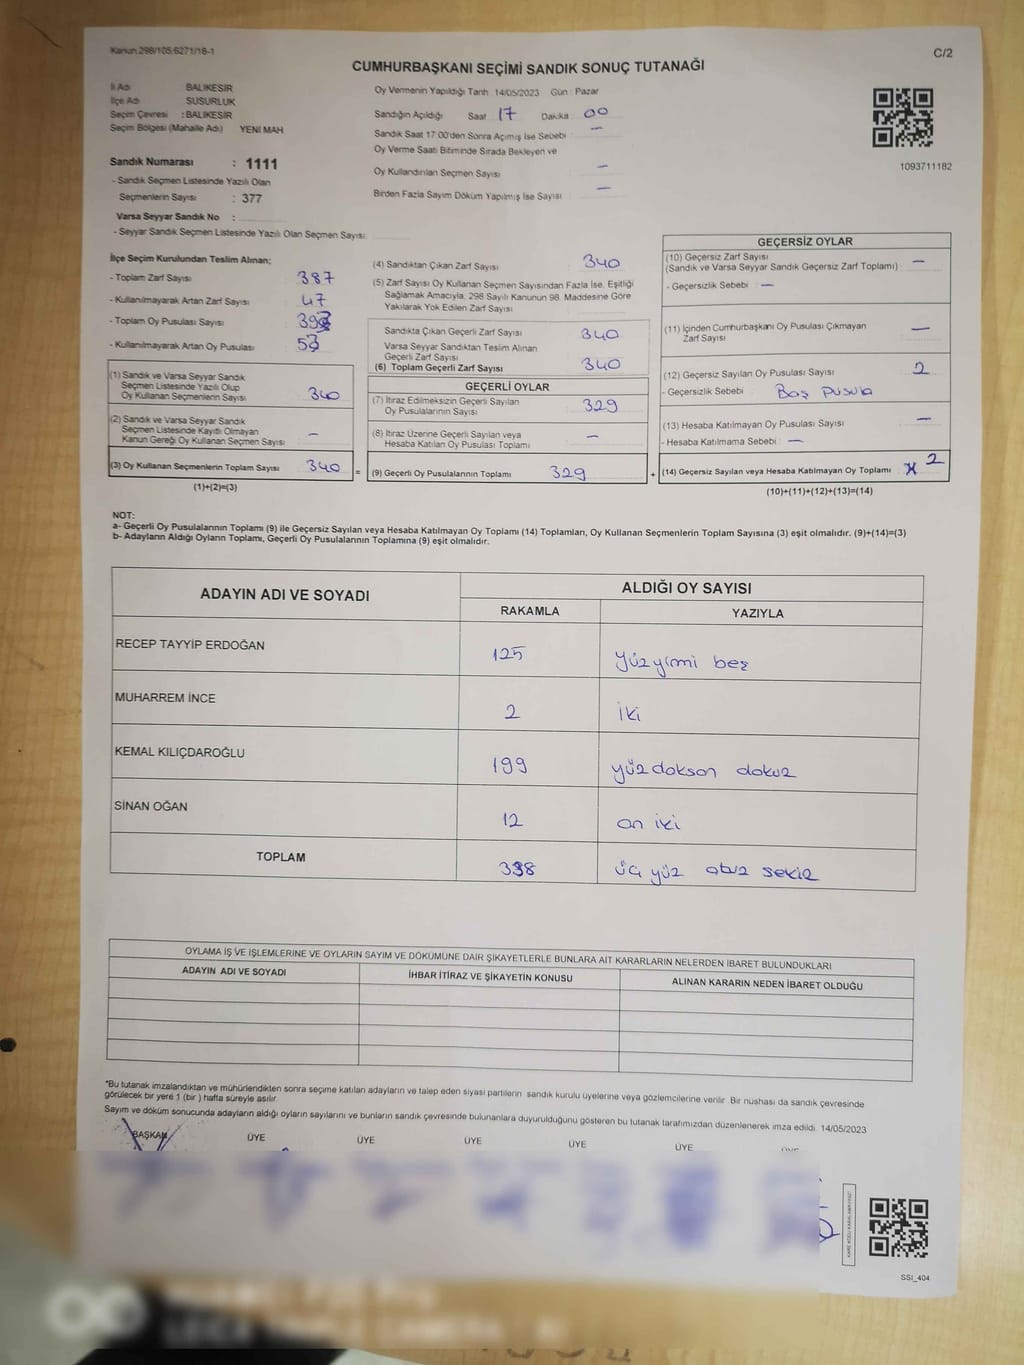 Kanun.298/105;6271/18-1
C/2
CUMHURBAŞKANI SEÇİMİ SANDIK SONUÇ TUTANAĞI
İl Adı BALIKESİR
İlçe Adı SUSURLUK
Seçim Çevresi : BALIKESİR
Seçim Bölgesi (Mahalle Adı) YENİ MAH
Sandık Numarası : 1111
- Sandık Seçmen Listesinde Yazılı Olan
Seçmenlerin Sayısı : 377
Varsa Seyyar Sandık No :
- Seyyar Sandık Seçmen Listesinde Yazılı Olan Seçmen Sayısı
Oy Vermenin Yapıldığı Tarih 14/05/2023 Gün : Pazar
Sandığın Açıldığı Saat 17 Dakika 00
Sandık Saat 17:00'den Sonra Açımış İse Sebebi —
Oy Verme Saati Bitiminde Sırada Bekleyen ve
Oy Kullandırılan Seçmen Sayısı —
Birden Fazla Sayım Döküm Yapılmış İse Sayısı —
1093711182
İlçe Seçim Kurulundan Teslim Alınan;
- Toplam Zarf Sayısı 387
- Kullanılmayarak Artan Zarf Sayısı 47
- Toplam Oy Pusulası Sayısı
- Kullanılmayarak Artan Oy Pusulası
(1) Sandık ve Varsa Seyyar Sandık
Seçmen Listesinde Yazılı Olup
Oy Kullanan Seçmenlerin Sayısı 340
(2) Sandık ve Varsa Seyyar Sandık
Seçmen Listesinde Kaydı Olmayan
Kanun Gereği Oy Kullanan Seçmen Sayısı —
(3) Oy Kullanan Seçmenlerin Toplam Sayısı 340 =
(1)+(2)=(3)
(4) Sandıktan Çıkan Zarf Sayısı 340
(5) Zarf Sayısı Oy Kullanan Seçmen Sayısından Fazla İse, Eşitliği
Sağlamak Amacıyla, 298 Sayılı Kanunun 98. Maddesine Göre
Yakılarak Yok Edilen Zarf Sayısı
Sandıkta Çıkan Geçerli Zarf Sayısı 340
Varsa Seyyar Sandıktan Teslim Alınan
Geçerli Zarf Sayısı
(6) Toplam Geçerli Zarf Sayısı 340
GEÇERLİ OYLAR
(7) İtiraz Edilmeksizin Geçerli Sayılan
Oy Pusulalarının Sayısı 329
(8) İtiraz Üzerine Geçerli Sayılan veya
Hesaba Katılan Oy Pusulası Toplamı —
(9) Geçerli Oy Pusulalarının Toplamı 329 +
GEÇERSİZ OYLAR
(10) Geçersiz Zarf Sayısı —
(Sandık ve Varsa Seyyar Sandık Geçersiz Zarf Toplamı)
- Geçersizlik Sebebi : —
(11) İçinden Cumhurbaşkanı Oy Pusulası Çıkmayan
Zarf Sayısı —
(12) Geçersiz Sayılan Oy Pusulası Sayısı 2
- Geçersizlik Sebebi : Boş pusula
(13) Hesaba Katılmayan Oy Pusulası Sayısı —
- Hesaba Katılmama Sebebi : —
(14) Geçersiz Sayılan veya Hesaba Katılmayan Oy Toplamı 2
(10)+(11)+(12)+(13)=(14)
NOT:
a- Geçerli Oy Pusulalarının Toplamı (9) ile Geçersiz Sayılan veya Hesaba Katılmayan Oy Toplamı (14) Toplamları, Oy Kullanan Seçmenlerin Toplam Sayısına (3) eşit olmalıdır. (9)+(14)=(3)
b- Adayların Aldığı Oyların Toplamı, Geçerli Oy Pusulalarının Toplamına (9) eşit olmalıdır.
ADAYIN ADI VE SOYADI ALDIĞI OY SAYISI
RAKAMLA YAZIYLA
RECEP TAYYİP ERDOĞAN 125 yüzyirmi beş
MUHARREM İNCE 2 iki
KEMAL KILIÇDAROĞLU 199 yüzdokson dokuz
SİNAN OĞAN 12 on iki
TOPLAM 338 üç yüz otuz sekiz
OYLAMA İŞ VE İŞLEMLERİNE VE OYLARIN SAYIM VE DÖKÜMÜNE DAİR ŞİKAYETLERLE BUNLARA AİT KARARLARIN NELERDEN İBARET BULUNDUKLARI
ADAYIN ADI VE SOYADI İHBAR İTİRAZ VE ŞİKAYETİN KONUSU ALINAN KARARIN NEDEN İBARET OLDUĞU
*Bu tutanak imzalandıktan ve mühürlendikten sonra seçime katılan adayların ve talep eden siyasi partilerin sandık kurulu üyelerine veya gözlemcilerine verilir. Bir nüshası da sandık çevresinde
görülecek bir yere 1 (bir) hafta süreyle asılır.
Sayım ve döküm sonucunda adayların aldığı oyların sayılarını ve bunların sandık çevresinde bulunanlara duyurulduğunu gösteren bu tutanak tarafımızdan düzenlenerek imza edildi. 14/05/2023
BAŞKAN ÜYE ÜYE ÜYE ÜYE ÜYE
SSI_404